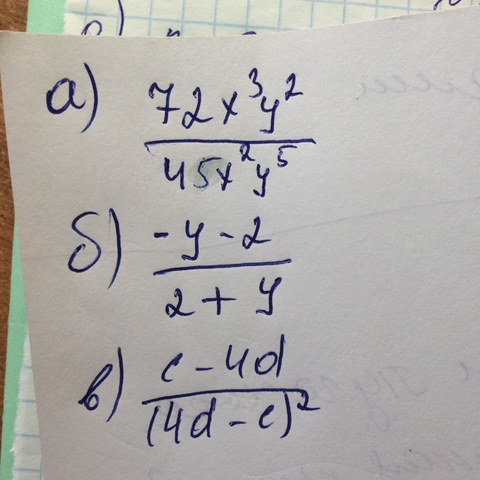 а) 72x³y²
45x²y⁵
б) -y - 2
2 + y
в) c - 4d
(4d - c)²